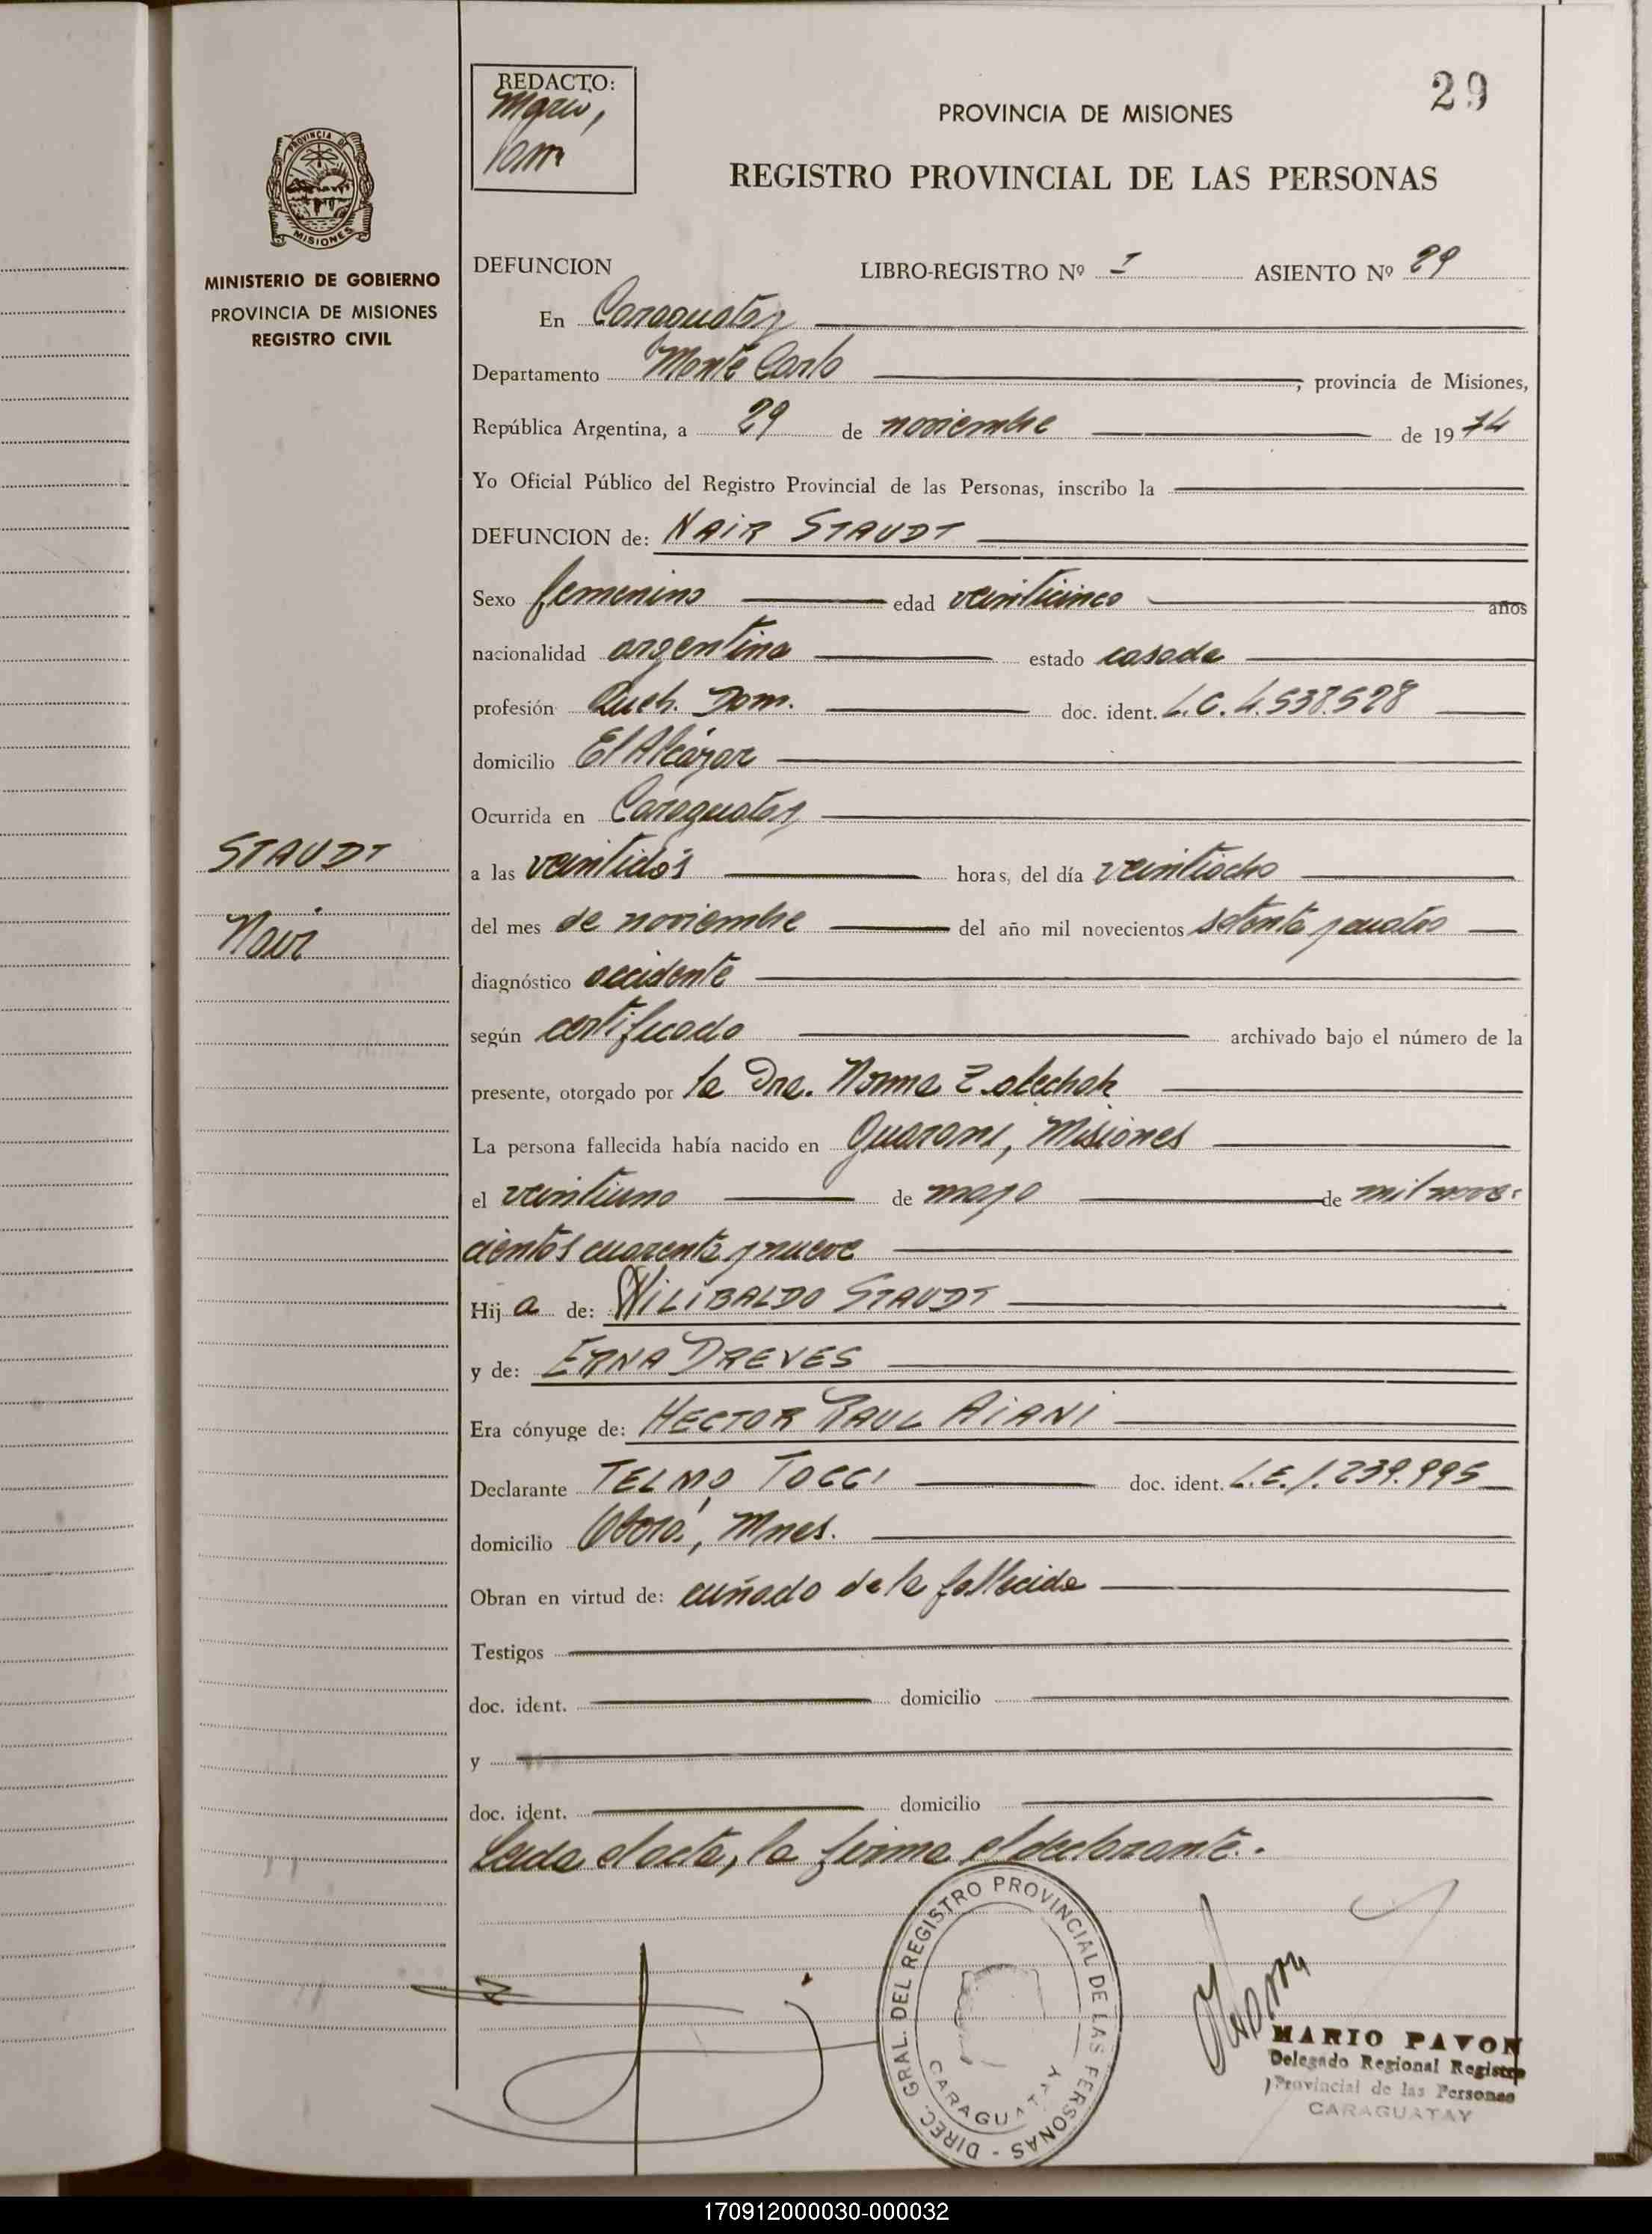 29
REDACTO:
PROVINCIA DE MISIONES
REGISTRO PROVINCIAL DE LAS PERSONAS
PROVINCIA DE
MISIONES
MINISTERIO DE GOBIERNO
PROVINCIA DE MISIONES
REGISTRO CIVIL
DEFUNCION LIBRO-REGISTRO Nº I ASIENTO Nº 29
En Caraguatay
Departamento Monte Carlo, provincia de Misiones,
República Argentina, a 29 de noviembre de 1974
Yo Oficial Público del Registro Provincial de las Personas, inscribo la
DEFUNCION de: NAIR STAUDT
Sexo femenino edad veinticinco años
nacionalidad argentina estado casada
profesión Queh. Dom. doc. ident. L.C. 4.538.528
domicilio El Alcázar
Ocurrida en Caraguatay
STAUDT
Nair
a las veintidós horas, del día veintiocho
del mes de noviembre del año mil novecientos setenta y cuatro
diagnóstico accidente
según certificado archivado bajo el número de la
presente, otorgado por la Dra. Norma
La persona fallecida había nacido en Guaraní, Misiones
el veintiuno de mayo de mil nove-
cientos cuarenta y nueve
Hij a de: WILIBALDO STAUDT
y de: ERNA DREVES
Era cónyuge de: HECTOR RAUL AIANI
Declarante TELMO TOCCI doc. ident. L.E. 1.239.995
domicilio Oberá, Mnes.
Obran en virtud de: cuñado de la fallecida
Testigos
doc. ident. domicilio
y
doc. ident. domicilio
Leída el acta, la firma el declarante.
DIREC. GRAL. DEL REGISTRO PROVINCIAL DE LAS PERSONAS -
CARAGUATAY
MARIO PAVON
Delegado Regional Registro
Provincial de las Personas
CARAGUATAY
170912000030-000032